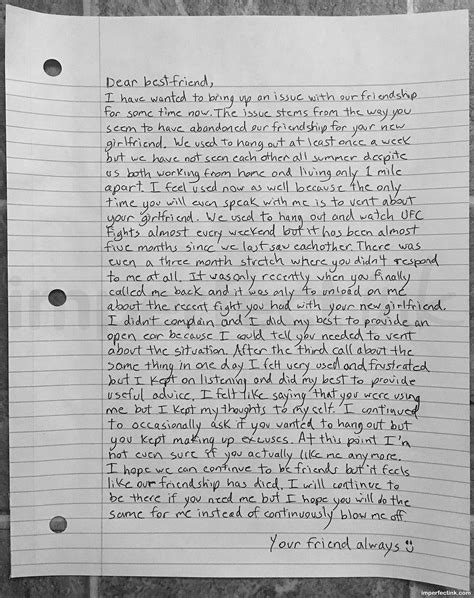 Dear bestfriend,
I have wanted to bring up an issue with our friendship
for some time now. The issue stems from the way you
seem to have abandoned our friendship for your new
girlfriend. We used to hang out at least once a week
but we have not seen each other all summer despite
us both working from home and living only 1 mile
apart. I feel used now as well because the only
time you will even speak with me is to vent about
your girlfriend. We used to hang out and watch UFC
fights almost every weekend but it has been almost
five months since we last saw eachother. There was
even a three month stretch where you didn't respond
to me at all. It was only recently when you finally
called me back and it was only to unload on me
about the recent fight you had with your new girlfriend.
I didnt complain and I did my best to provide an
open ear because I could tell you needed to vent
about the situation. After the third call about the
same thing in one day I felt very used and frustrated
but I kept on listening and did my best to provide
useful advice. I felt like saying that you were using
me but I kept my thoughts to my self. I continued
to occasionally ask if you wanted to hang out but
you kept making up excuses. At this point I'm
not even sure if you actually like me anymore.
I hope we can continue to be friends but it feels
like our friendship has died. I will continue to
be there if you need me but I hope you will do the
same for me instead of continuously blow me off.
Your friend always
imperfectink.com